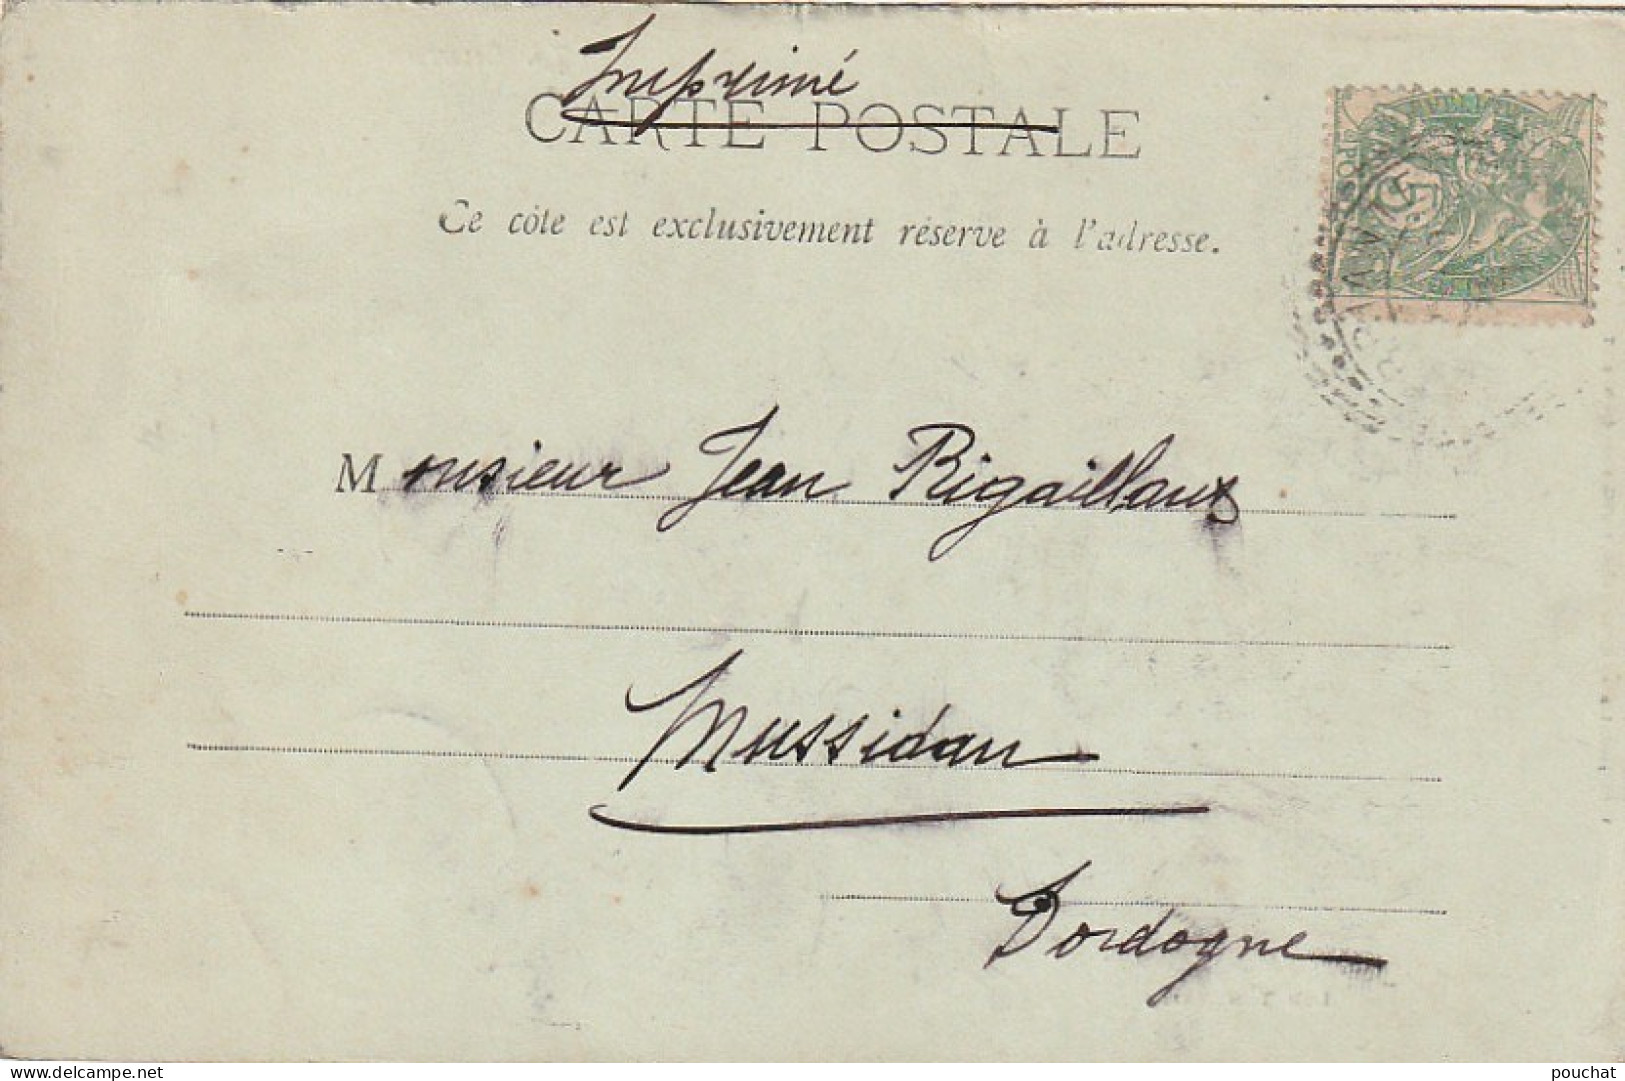 Imprimé
CARTE POSTALE
Ce côté est exclusivement réservé à l'adresse.
Monsieur Jean Rigaillaux
Mussidan
Dordogne
delcampe.net
pouchat